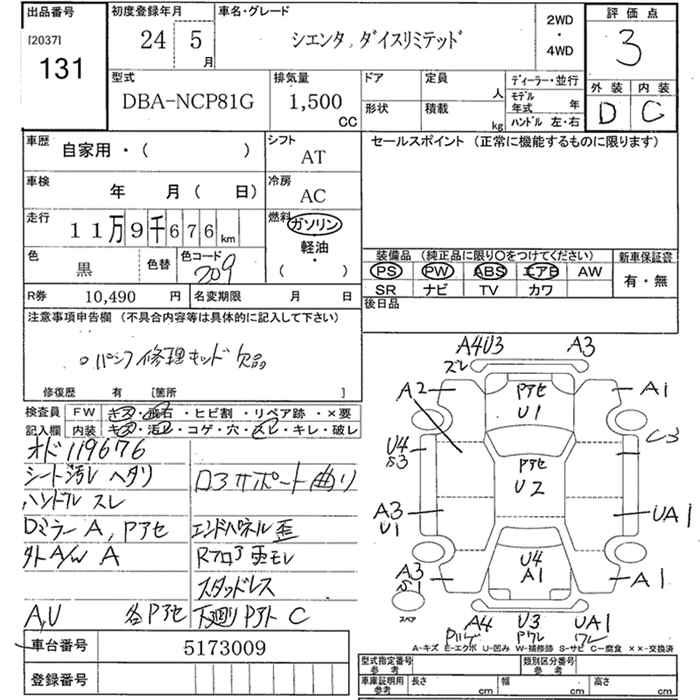 出品番号 初度登録年月 車名・グレード 2WD・4WD 評価点
[2037]
131
24 5月
シエンタ, ダイスリミテッド
3
型式 排気量 ドア 定員 人 ディーラー・並行 外装 内装
DBA-NCP81G 1,500 CC 形状 積載 kg モデル年式 年 ハンドル 左・右 D C
車歴 自家用・( ) シフト AT セールスポイント (正常に機能するものに限ります)
車検 年 月( 日) 冷房 AC
走行 11万9千676km 燃料 ガソリン 軽油・( )
装備品 (純正品に限り○をつけてください) 新車保証書
色 黒 色替 色コード 209 PS PW ABS エアB AW 有・無
SR ナビ TV カワ
R券 10,490 円 名変期限 月 日 後日品
注意事項申告欄 (不具合内容等は具体的に記入して下さい)
○パンク修理キッド欠品
修復歴 有 [箇所 ]
検査員 FW キズ・飛石・ヒビ割・リペア跡・×要
記入欄 内装 キズ・汚レ・コゲ・穴・スレ・キレ・破レ
オド119676
シート汚レ ヘタリ
ハンドル スレ
Dミラー A, Pアセ
外A/W A
A,U 各Pアセ
ロアサポート曲り
エンドパネル歪
Rフロア歪モレ
スタッドレス
下廻りPアト C
A4U3 A3
ズレ
A2 Pアセ A1
U1
U4 C3
S3 Pアセ
U2
A3 UA1
U1
A3 U4 A1
S1 A1
スペア A4 U3 UA1
Pハゲ Pワレ ワレ
A-キズ E-エクボ U-凹み W-補修跡 S-サビ C-腐食 ××-交換済
車台番号 5173009
登録番号
型式指定番号 参考 類別区分番号 参考
車庫証明用 参考 長さ cm 幅 cm 高さ cm